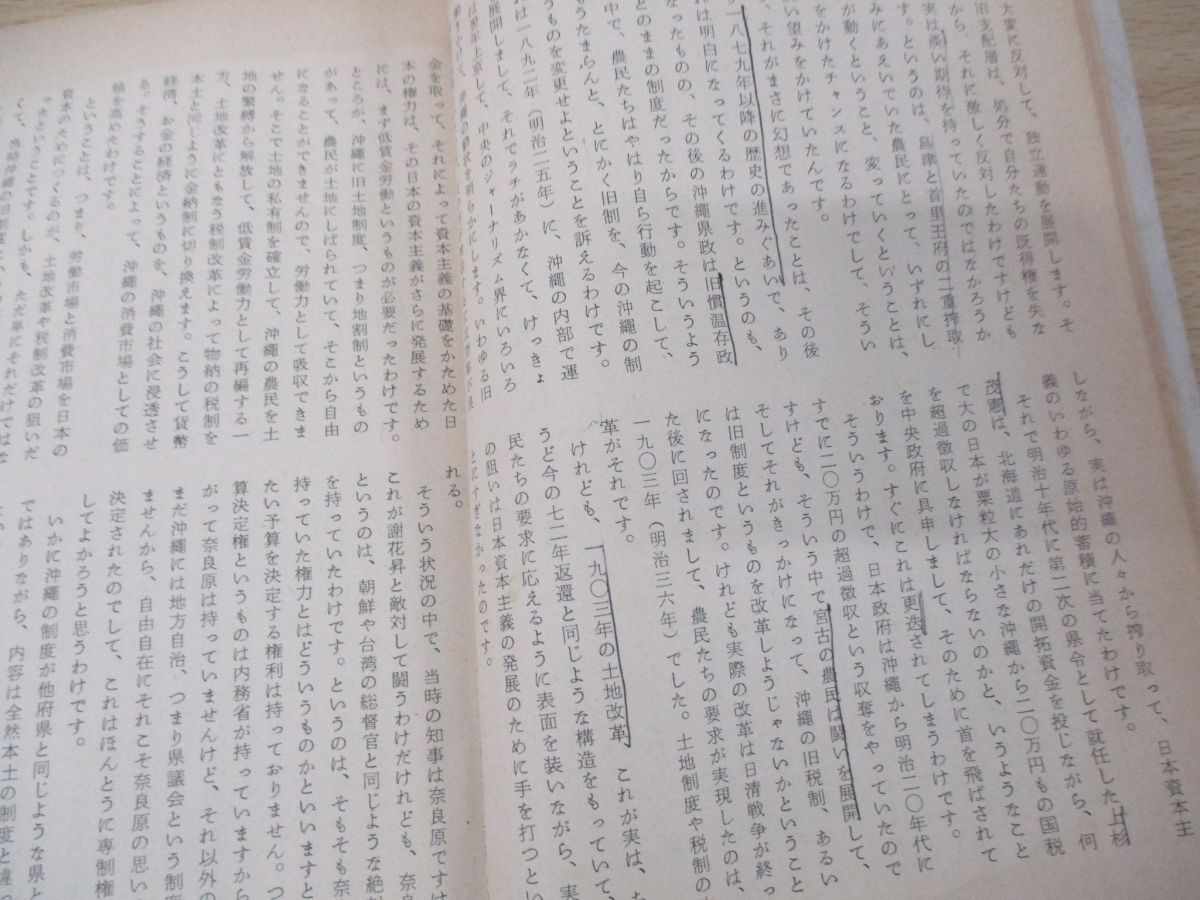 大変に反対して、独立運動を展開します。そ
旧支配層は、処分で自分たちの既得権を失な
から、それに激しく反対したわけですけども
実は淡い期待を持っていたのではなかろうか
す。というのは、島津と首里王府の二重搾取
みにあえいでいた農民にとって、いずれにし
が動くということ、変っていくということは、
をかけたチャンスになるわけでして、そうい
い望みをかけていたんです。
、それがまさに幻想であったことは、その後
一八七九年以降の歴史の進みぐあいで、あり
れは明白になってくるわけです。というのも、
なったものの、その後の沖縄県政は旧慣温存政
とのままの制度だったからです。そういうよう
中で、農民たちはやはり自ら行動を起こして、
もうたまらんと、とにかく旧制を、今の沖縄の制
うものを変更せよということを訴えるわけです。
れは一八九二年（明治二五年）に、沖縄の内部で運
展開しまして、それでラチがあかなくて、けっきょ
上京して、中央のジャーナリズム界にいろいろ
しながら、実は沖縄の人々から搾り取って、日本資本主
義のいわゆる原始的蓄積に当てたわけです。
それで明治十年代に第二次の県令として就任した上杉
茂憲は、北海道にあれだけの開拓資金を投じながら、何
で大の日本が粟粒大の小さな沖縄から二〇万円もの国税
を超過徴収しなければならないのかと、いうようなこと
を中央政府に具申しまして、そのために首を飛ばされて
おります。すぐにこれは更迭されてしまうわけです。
そういうわけで、日本政府は沖縄から明治二〇年代に
すでに二〇万円の超過徴収という収奪をやっていたので
すけども、そういう中で宮古の農民は闘いを展開して、
そしてそれがきっかけになって、沖縄の旧税制、あるい
は旧制度というものを改革しようじゃないかということ
になったのです。けれども実際の改革は日清戦争が終っ
た後に回されまして、農民たちの要求が実現したのは、
一九〇三年（明治三六年）でした。土地制度や税制の
革がそれです。
けれども、一九〇三年の土地改革、これが実は、ち
うど今の七二年返還と同じような構造をもっていて、
民たちの要求に応えるように表面を装いながら、実
の狙いは日本資本主義の発展のために手を打つとい
とにすぎなかったのです。
金を取って、それによって資本主義の基礎をかためた日
本の権力は、その日本の資本主義がさらに発展するため
には、まず低賃金労働というものが必要だったわけです。
ところが、沖縄に旧土地制度、つまり地割制というもの
があって、農民が土地にしばられていて、そこから自由
になることができませんので、労働力として吸収できま
せん。そこで土地の私有制を確立して、沖縄の農民を土
地の緊縛から解放して、低賃金労働力として再編する一
方、土地改革にともなう税制改革によって物納の税制を
本土と同じように金納制に切り換えます。こうして貨幣
経済、お金の経済というものを、沖縄の社会に浸透させ
る。そうすることによって、沖縄の消費市場としての価
値を高めたわけです。
ということは、つまり、労働市場と消費市場を日本の
資本のためにつくるのが、土地改革や税制改革の狙いだ
ったということです。しかも、ただ単にそれだけではな
れる。
そういう状況の中で、当時の知事は奈良原ですけ
これが謝花昇と敵対して闘うわけだけれども、奈
というのは、朝鮮や台湾の総督官と同じような絶
を持っていたわけです。というのは、そもそも奈
持っていた権力とはどういうものかといいますと
たい予算を決定する権利は持っておりません。つ
算決定権というものは内務省が持っていますから
がって奈良原は持っていませんけど、それ以外の
まだ沖縄には地方自治、つまり県議会という制
ませんから、自由自在にそれこそ奈良原の思い
決定されたのでして、これはほんとうに専制権
してよかろうと思うわけです。
いかに沖縄の制度が他府県と同じような県と
ではありながら、内容は全然本土の制度と違